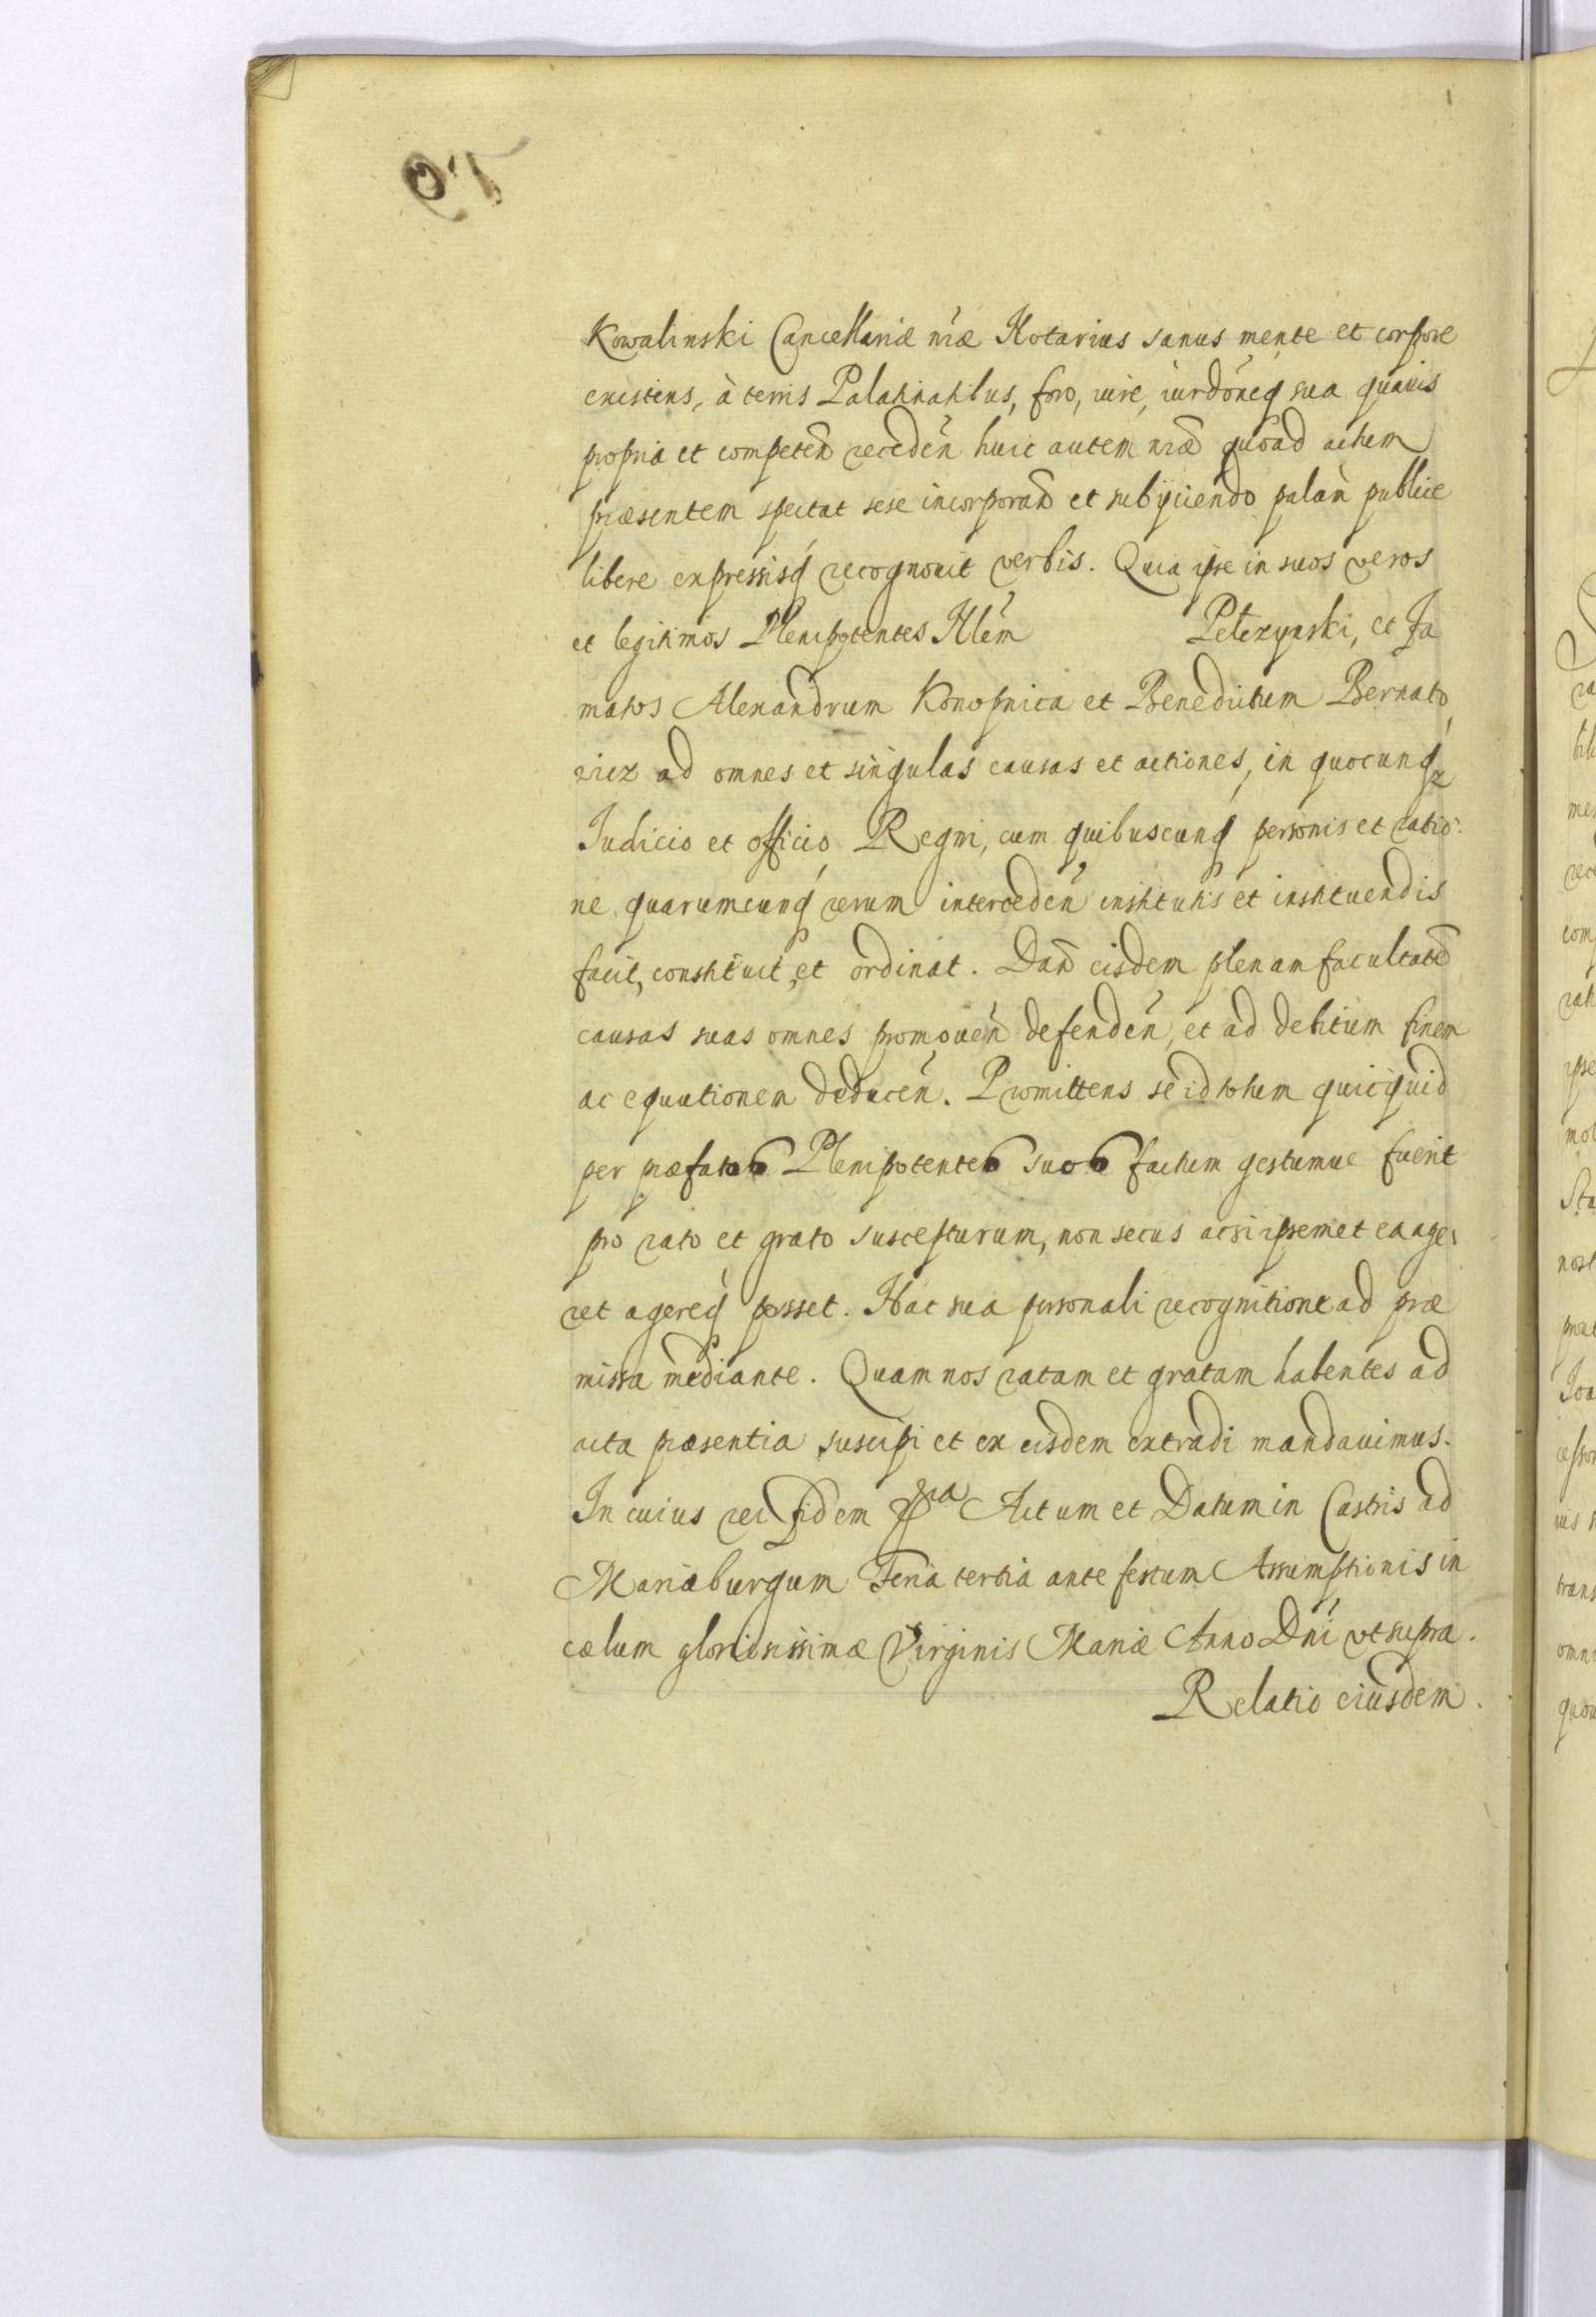 Kowalinski Cancellariæ nr̃æ Notarius sanus mente et corpore
existens, à terris Palatinatibus, foro, iure, iurdõneq sua quavis
propria et competeñ recedeñ huic autem nrã quoad actum
præsentem spectat sese incorporañ et subijciendo palàm publice
libere expressisq recognovit verbis. Quia ipse in suos veros
et legitimos Plenipotentes Nlem̃ Pelczynski, et Fa
matos Alexandrum Konopnica et Benedictum Bernato,
wicz ad omnes et singulas causas et actiones, in quocunq
Judicio et officio Regni, cum quibuscunq personis et ratio:
ne quarumcunq rerum intercedeñ institutis et instituendis
facit, constituit, et ordinat. Dañ eisdem plenam facultatẽ
causas suas omnes promoueñ defendeñ, et ad debitum finem
ac equutionem deduceñ. Promittens se id totum quicquid
per præfatos Plenipotentes suos factum gestumue fuerit
pro rato et grato suscepturum, non secus acsi ipsemet ea age:
ret agereq posset. Hac sua personali recognitione ad præ
missa mediante. Quam nos ratam et gratam habentes ad
acta præsentia suscipi et ex eisdem extradi mandauimus.
In cuius rei fidem Actum et Datum in Castris ad
Mariæburgum Feria tertia ante festum Assumptionis in
cælum gloriosissimæ Virginis Mariæ Anno Dni vt supra.
Relatio eiusdem.